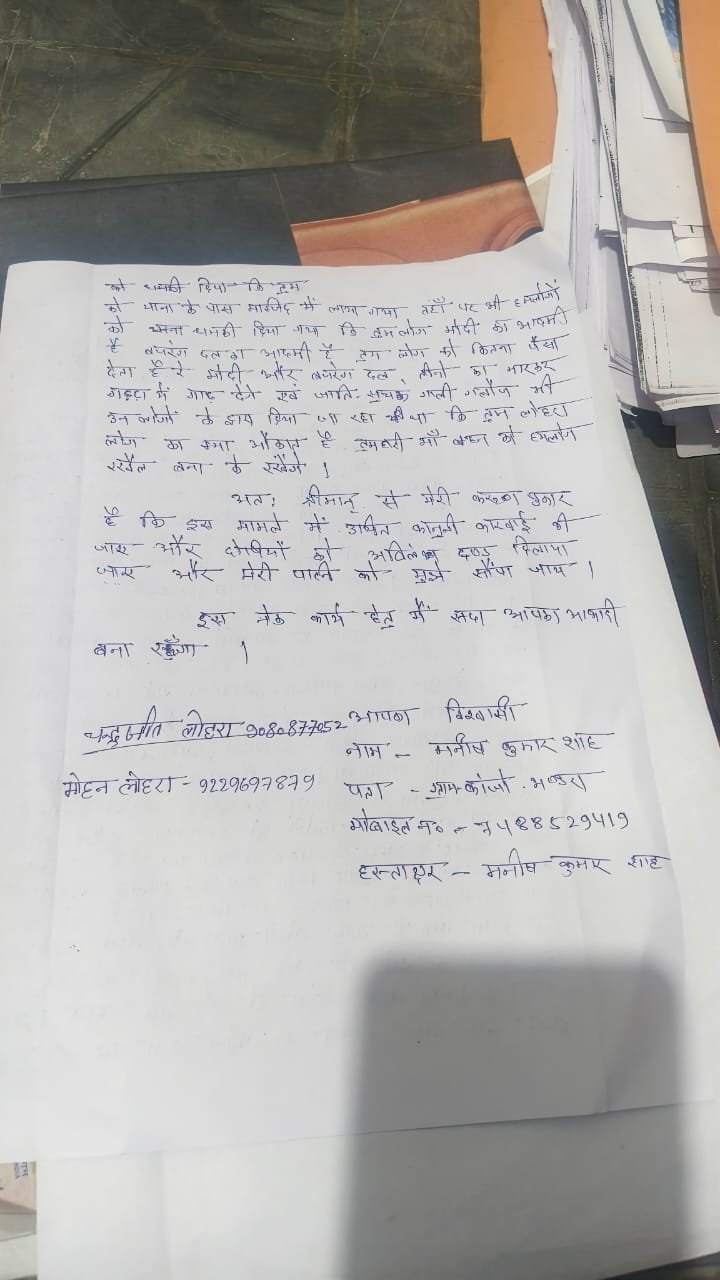 को धमकी दिया कि तुम
को थाना के पास मस्जिद में लाया गया वहाँ पर भी हमलोगों
को धमकी दिया गया कि तुमलोग मोदी का आदमी
है बजरंग दल का आदमी है तुम लोग को कितना पैसा
देता है रे मोदी और बजरंग दल, तीनों का मारकर
गड्ढा में गाड़ देंगे एवं जाति सूचक गाली गलौज भी
उन लोगों के द्वारा दिया जा रहा था कि तुम लोहरा
लोग का क्या औकात है तुम्हारी माँ बहन को हमलोग
रखैल बना के रखेंगे।
अत: श्रीमान् से मेरी करूण पुकार
है कि इस मामले में उचित कानुनी कारवाई की
जाए और दोषियों को अविलंब दण्ड दिलाया
जाए और मेरी पत्नि को मुझे सौंपा जाय।
इस नेक कार्य हेतु मैं सदा आपका आभारी
बना रहुँगा।
आपका विश्वासी
चन्द्रजीत लोहरा 9080877052
नाम - मनीष कुमार शाह
मोहन लोहरा - 9229697879
पता - ग्राम-कांजो
मोबाइल नं० - 7488529419
हस्ताक्षर - मनीष कुमार शाह